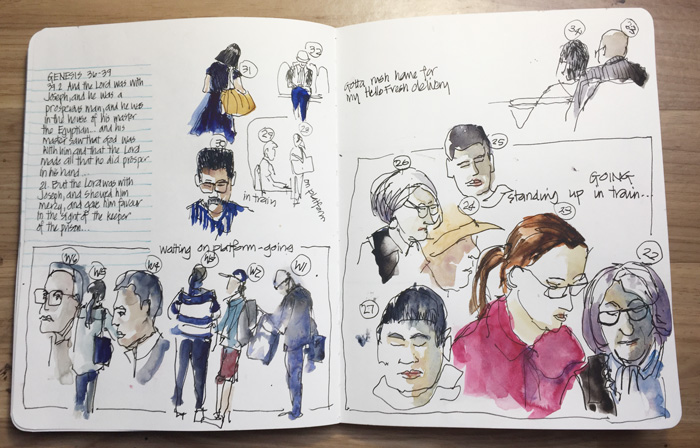 GENESIS 36-39
39.2 And the Lord was with
Joseph, and he was a
prosperous man, and he was
in the house of his master
the Egyptian... and his
master saw that God was
with him and that the Lord
made all that he did prosper
in his hand...
21. But the Lord was with
Joseph, and showed him
mercy, and gave him favor
in the sight of the keeper
of the prison...
31
32
29
28
30
in train
on platform
waiting on platform-going
W6
W5
W4
W3
W2
W1
Gotta rush home for
my Hello Fresh delivery
34
33
25
26
GOING
standing up in train...
24
23
22
27